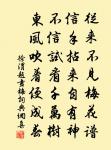 從來不見梅花譜
信手拈來自有神
不信試看千萬樹
東風吹著便成春
徐渭題畫梅詞典網